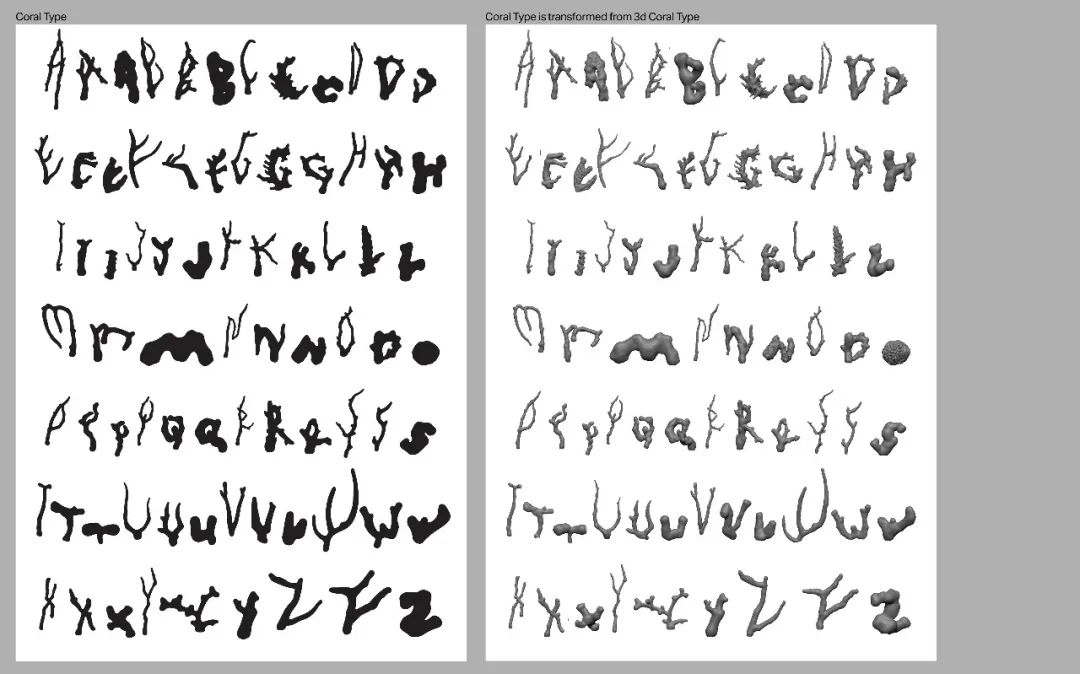 Coral Type
A A A B B B C C C D D D
E E E F F F G G G H H H
I I I J J J K K K L L L
M M M N N N O O O
P P P Q Q Q R R R S S S
T T T U U U V V V W W W
X X X Y Y Y Z Z Z
Coral Type is transformed from 3d Coral Type
A A A B B B C C C D D D
E E E F F F G G G H H H
I I I J J J K K K L L L
M M M N N N O O O
P P P Q Q Q R R R S S S
T T T U U U V V V W W W
X X X Y Y Y Z Z Z